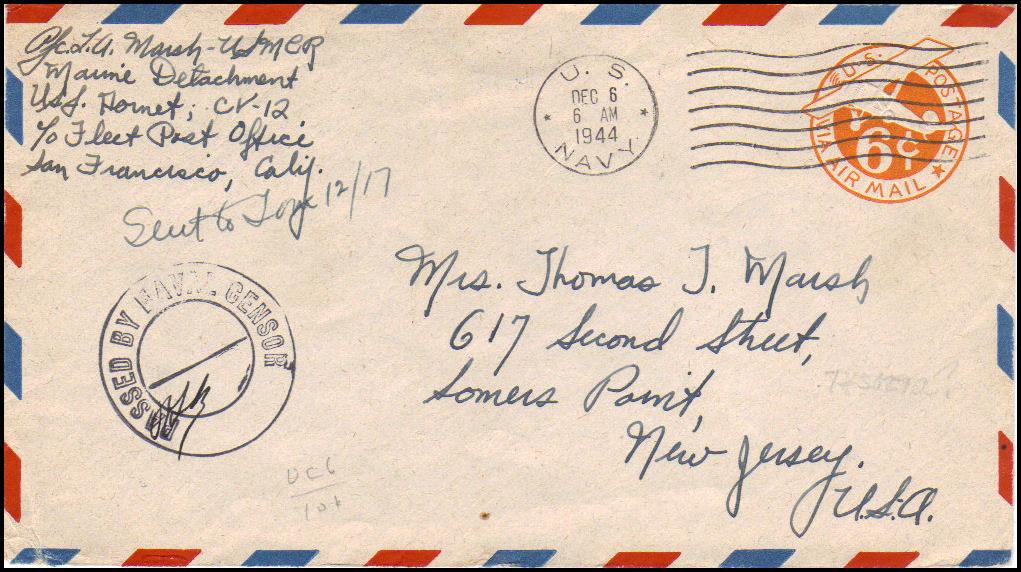 Pfc. T. A. Marsh - USMCR
Marine Detachment
U.S.S. Hornet; CV-12
℅ Fleet Post Office
San Francisco, Calif.
Sent to 12/17
U. S.
DEC 6
6 AM
1944
NAVY
U.S. POSTAGE
6¢
VIA AIR MAIL
PASSED BY NAVAL CENSOR
Mrs. Thomas J. Marsh
617 Second Street,
Somers Point,
New Jersey.
U.S.A.